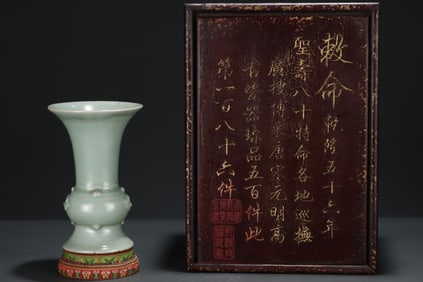 敕命乾隆五十六年
聖壽八十特命各地巡撫
廣搜博采唐宋元明高
古瓷器珍品五百件此
第一百八十六件